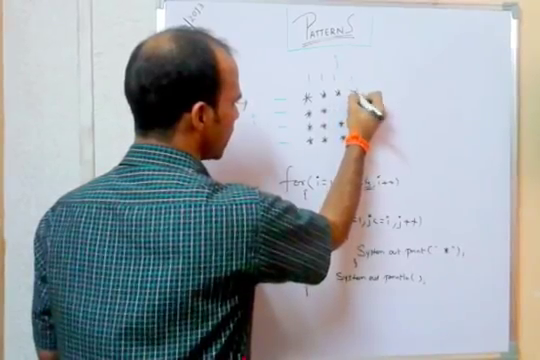 /2013
PATTERNS
* * * *
* *
* * *
* * *
for(i=1 4,i++)
{
=1,j<=i,j++)
System out print(" * "),
}
System out println( ),
}